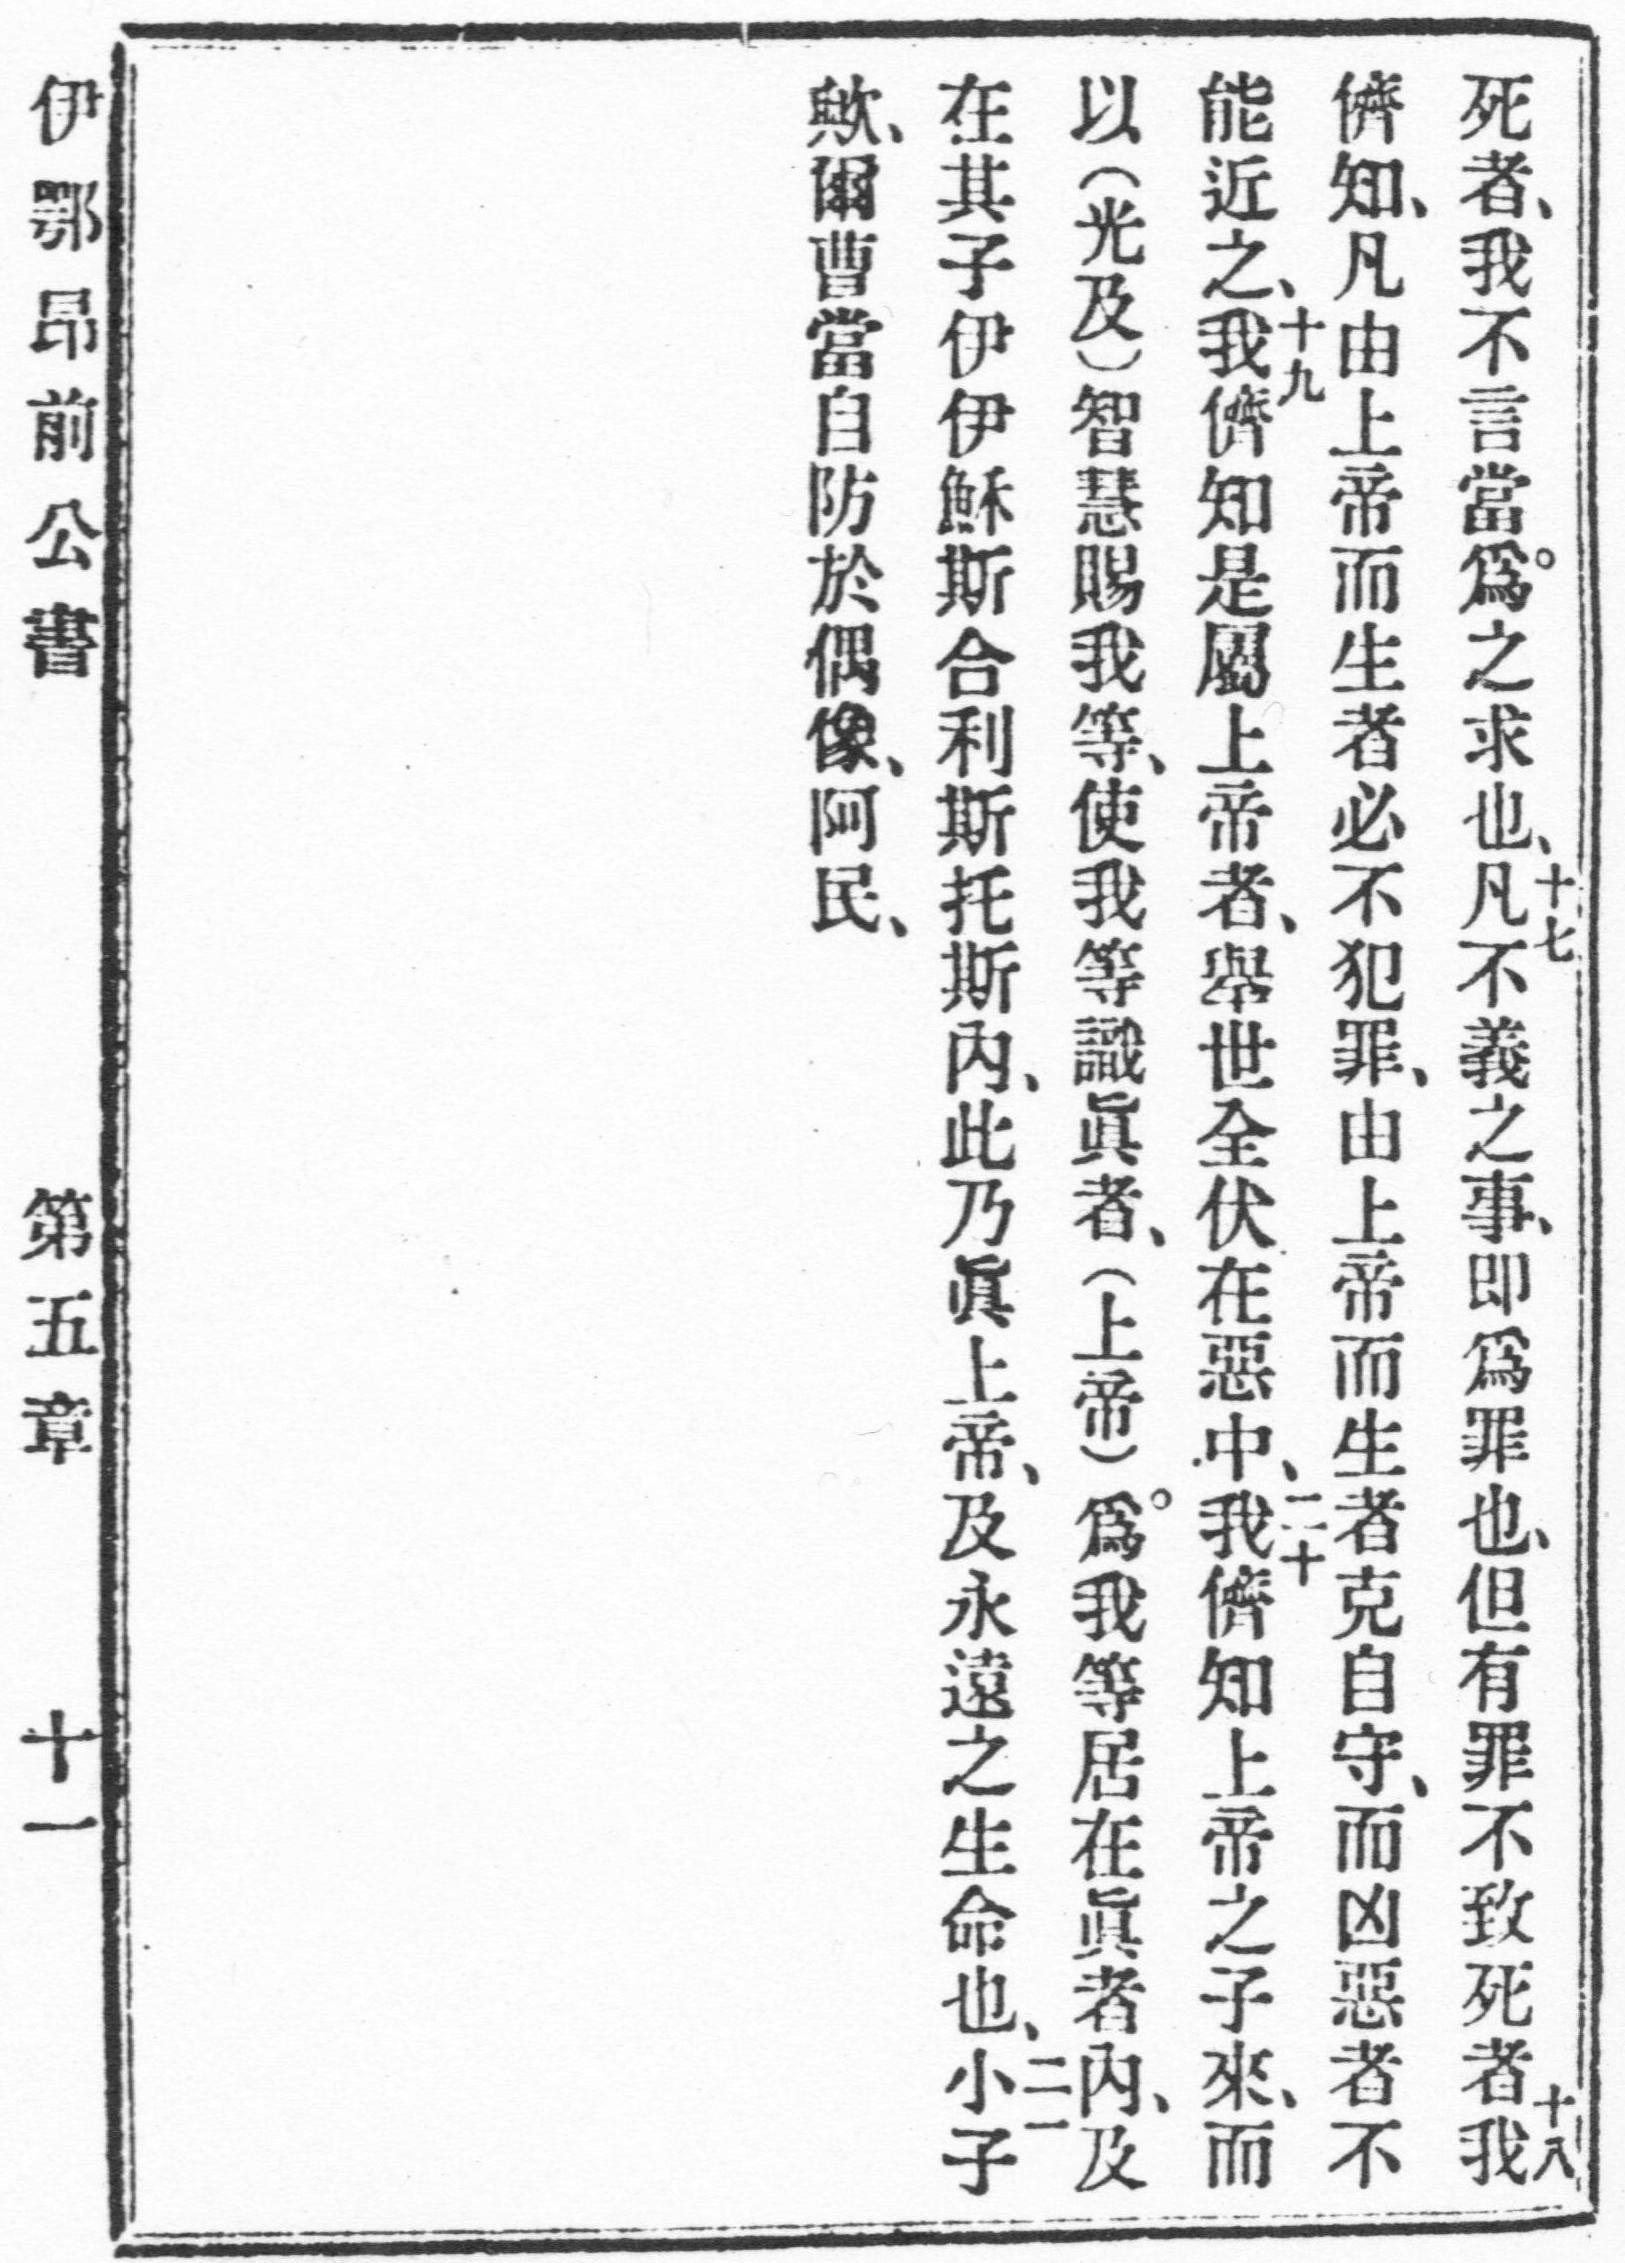 死者、我不言當爲。之求也、十七凡不義之事、即爲罪也、但有罪不致死者十八我
儕知、凡由上帝而生者必不犯罪、由上帝而生者克自守、而凶惡者不
能近之、十九我儕知是屬上帝者、舉世全伏在惡中、二十我儕知上帝之子來、而
以(光及)智慧賜我等、使我等識眞者、(上帝)爲。我等居在眞者內、及
在其子伊伊穌斯合利斯托斯內、此乃眞上帝、及永遠之生命也、二一小子
歟、爾曹當自防於偶像、阿民、
伊鄂昂前公書 第五章 十一